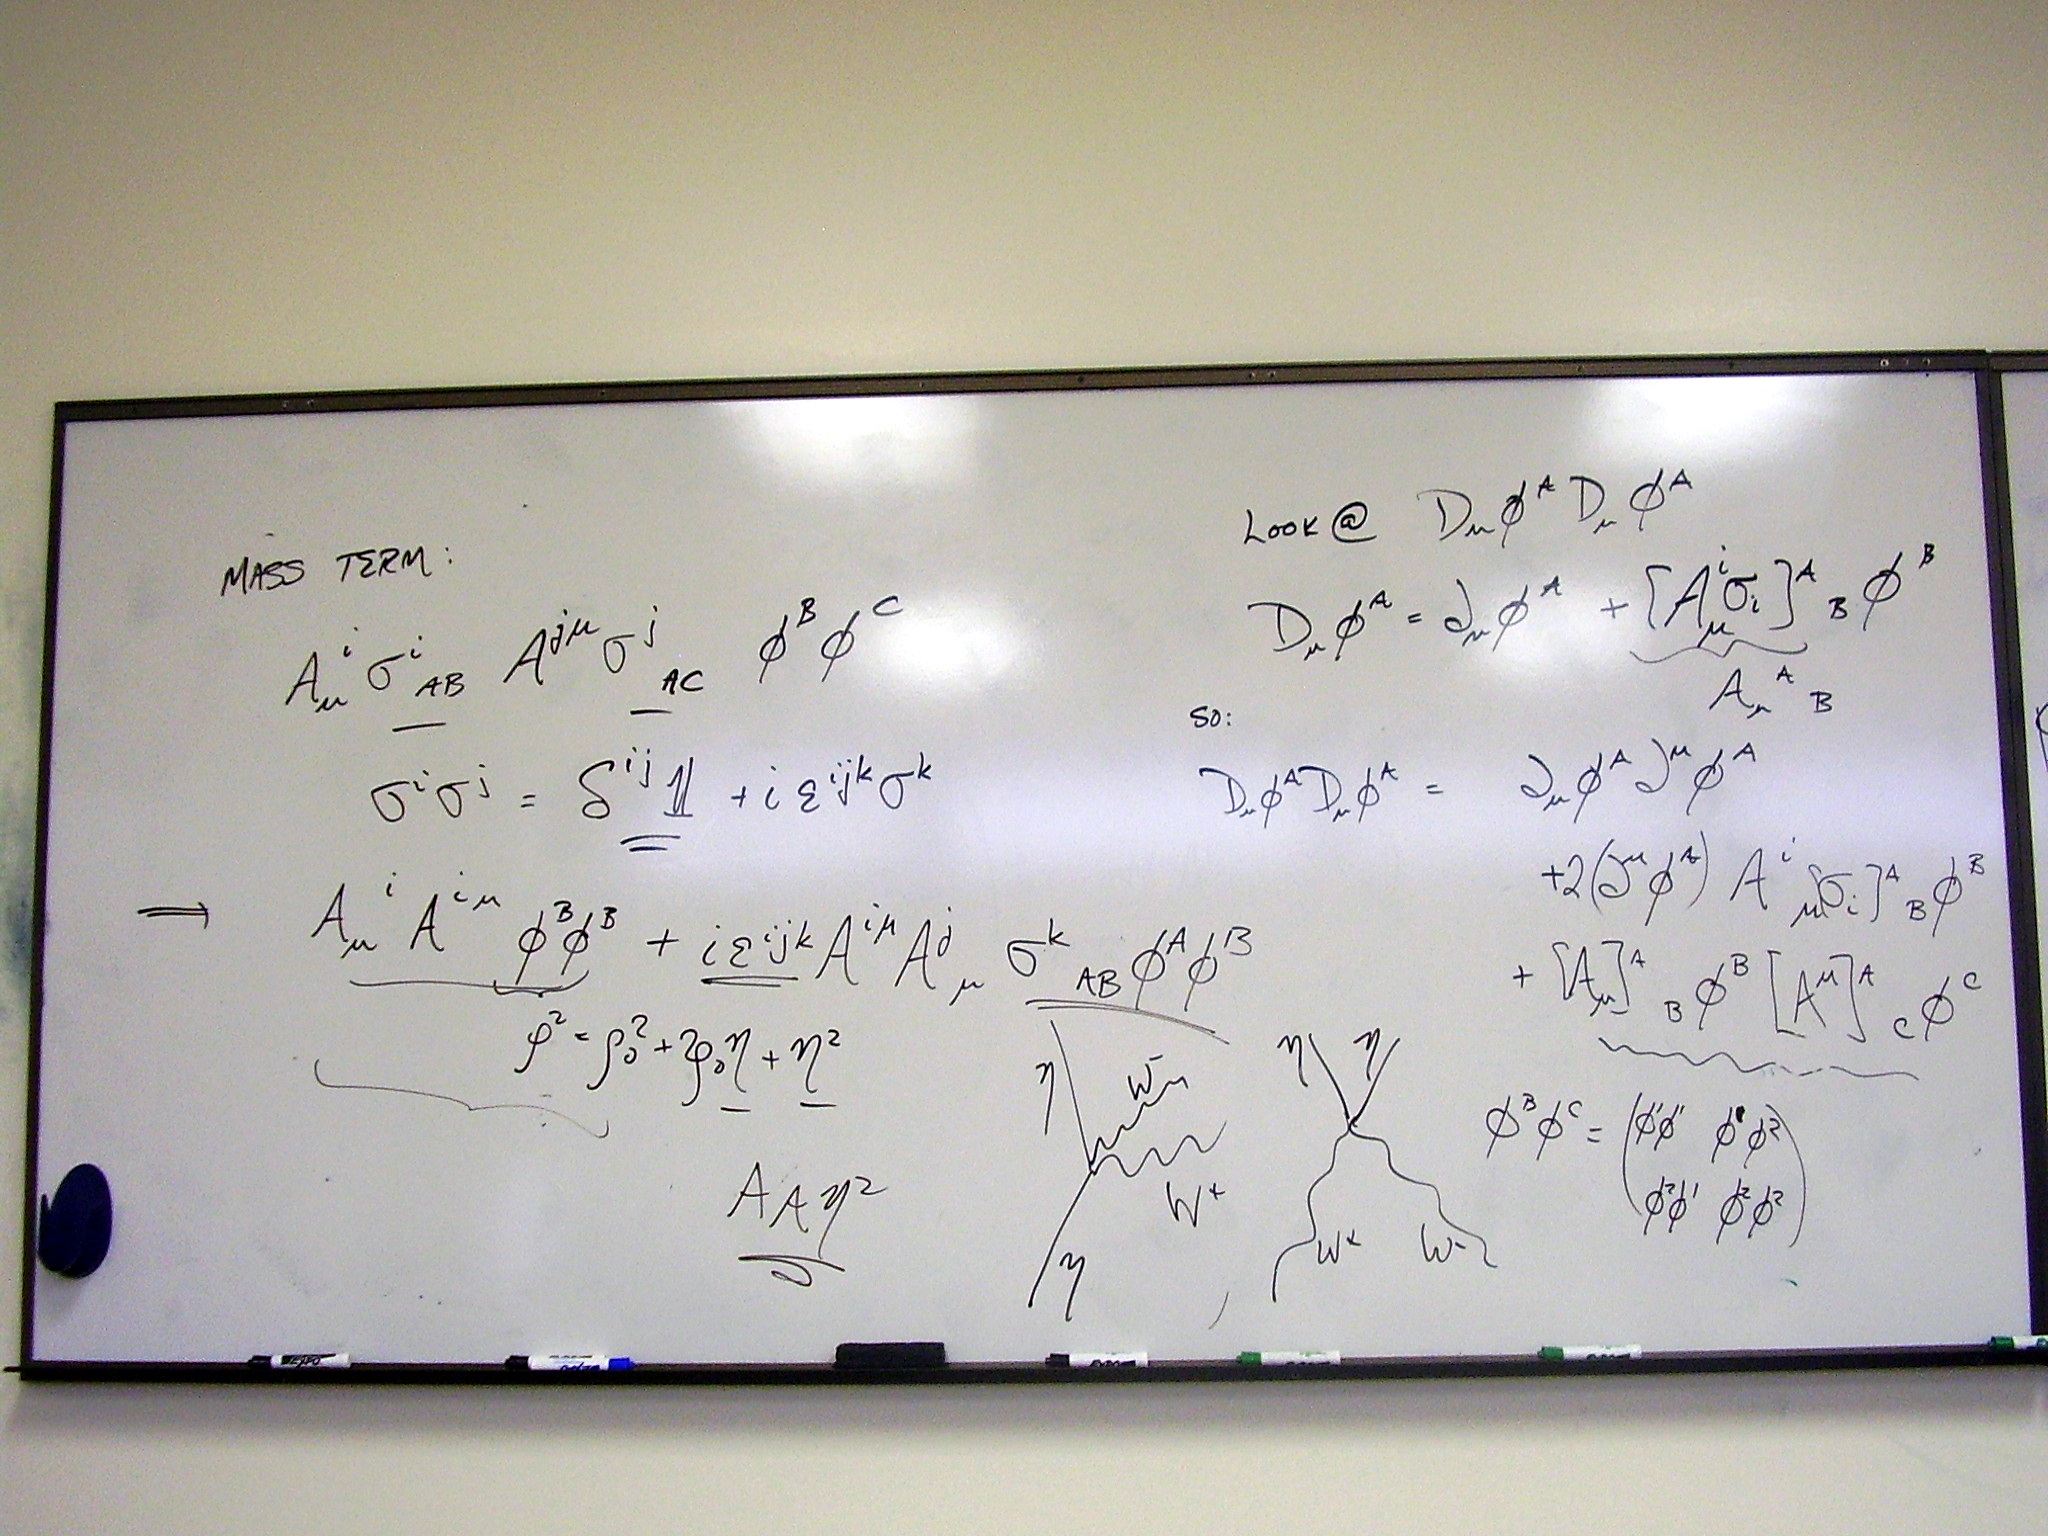 MASS TERM:
A_μ^i σ^i_AB A^{jμ} σ^j_AC φ^B φ^C
σ^i σ^j = δ^{ij} 𝟙 + i ε^{ijk} σ^k
⇒ A_μ^i A^{iμ} φ^B φ^B + i ε^{ijk} A^{iμ} A^j_μ σ^k_AB φ^A φ^B
ρ² = ρ₀² + 2ρ₀η + η²
A A η²
η W⁻ W⁺ η
η η W⁺ W⁻
LOOK @ D_μ φ^A D_μ φ^A
D_μ φ^A = ∂_μ φ^A + [A_μ^i σ_i]^A_B φ^B
A_μ^A_B
SO:
D_μ φ^A D_μ φ^A = ∂_μ φ^A ∂^μ φ^A
+2(∂^μ φ^A) A^i_μ [σ_i]^A_B φ^B
+ [A_μ]^A_B φ^B [A^μ]^A_C φ^C
φ^B φ^C = (φ¹φ¹ φ¹φ²
φ²φ¹ φ²φ²)
EXPO